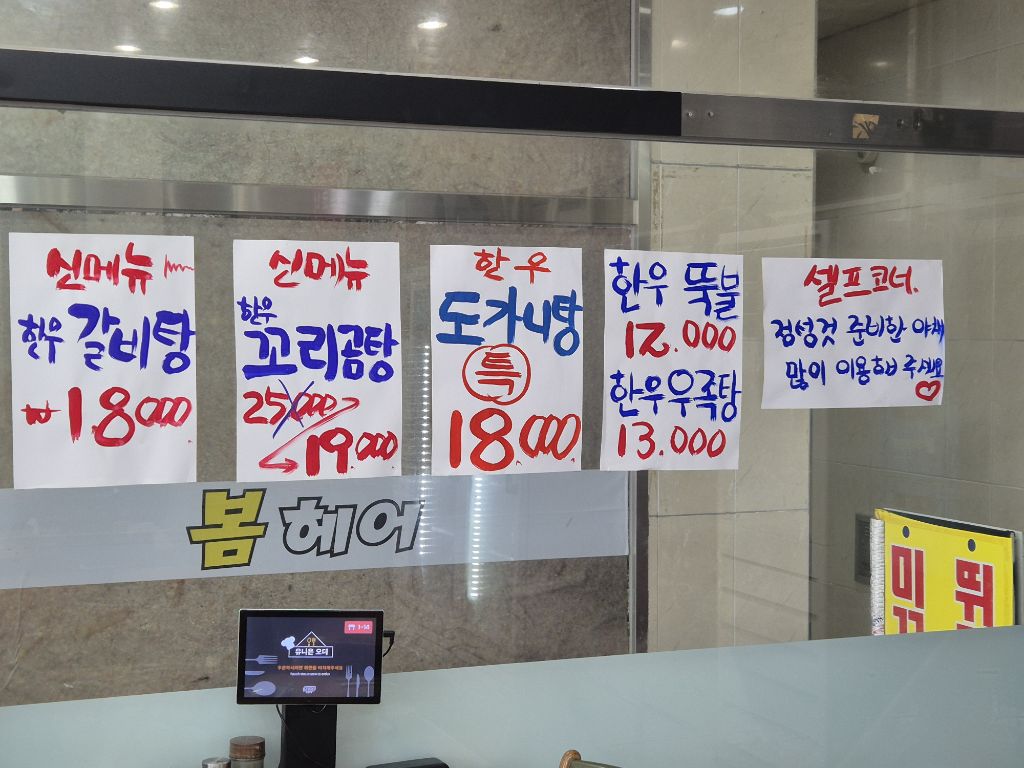 신메뉴
한우 갈비탕
₩18.000
신메뉴
한우
꼬리곰탕
25.000
19.000
한우
도가니탕
특
18.000
한우 뚝불
12.000
한우우족탕
13.000
셀프코너.
정성것 준비한 야채
많이 이용해 주세요
봄헤어
유니온 오더